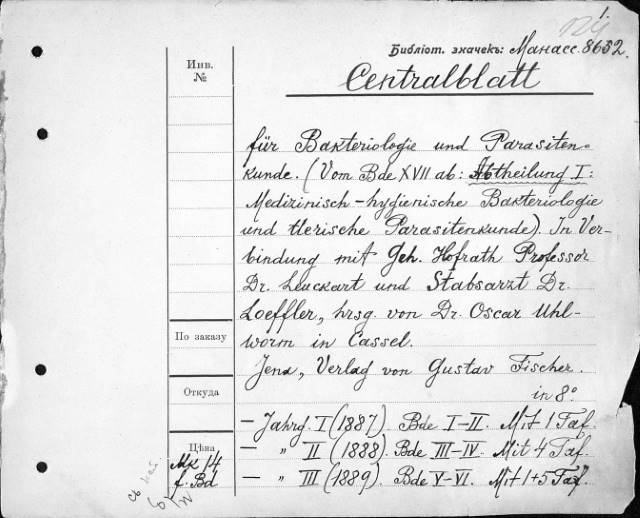 1.
124
Библіот. значекъ: Манасс. 8632.
Инв.
№
Centralblatt
für Bakteriologie und Parasiten-
kunde. (Vom Bde XVII ab: Abtheilung I:
Medizinisch-hygienische Bakteriologie
und tierische Parasitenkunde). In Ver-
bindung mit Geh. Hofrath Professor
Dr. Leuckart und Stabsarzt Dr.
Loeffler, hrsg. von Dr. Oscar Uhl-
worm in Cassel.
По заказу
Jena, Verlag von Gustav Fischer.
Откуда
in 8°.
– Jahrg. I (1887). Bde I–II. Mit 1 Taf.
Цѣна
– „ II (1888). Bde III–IV. Mit 4 Taf.
Mk 14
f. Bd
– „ III (1889). Bde V–VI. Mit 1+5 Taf.